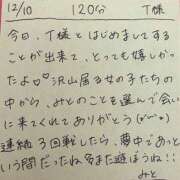 12/10 120分 T様
今日、T様とはじめましてする
ことが出来て、とっても嬉しかっ
たよ♡♡沢山居る女の子たちの
中から、みとのことを選んで会い
に来てくれてありがとう(*ˊᵕˋ*)
連続3回戦したら、夢中であっと
いう間だったねまた遊ぼうね!!
みと